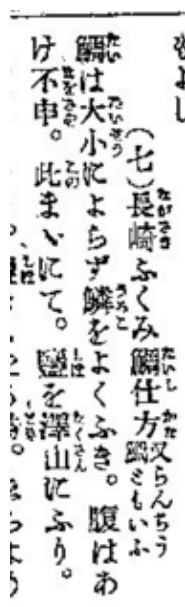 (七)長崎ふくみ鯛仕方又らんちう鯛ともいふ
鯛は大小によらず鱗をよくふき。腹はあ
け不申。此まゝにて。鹽を澤山にふり。